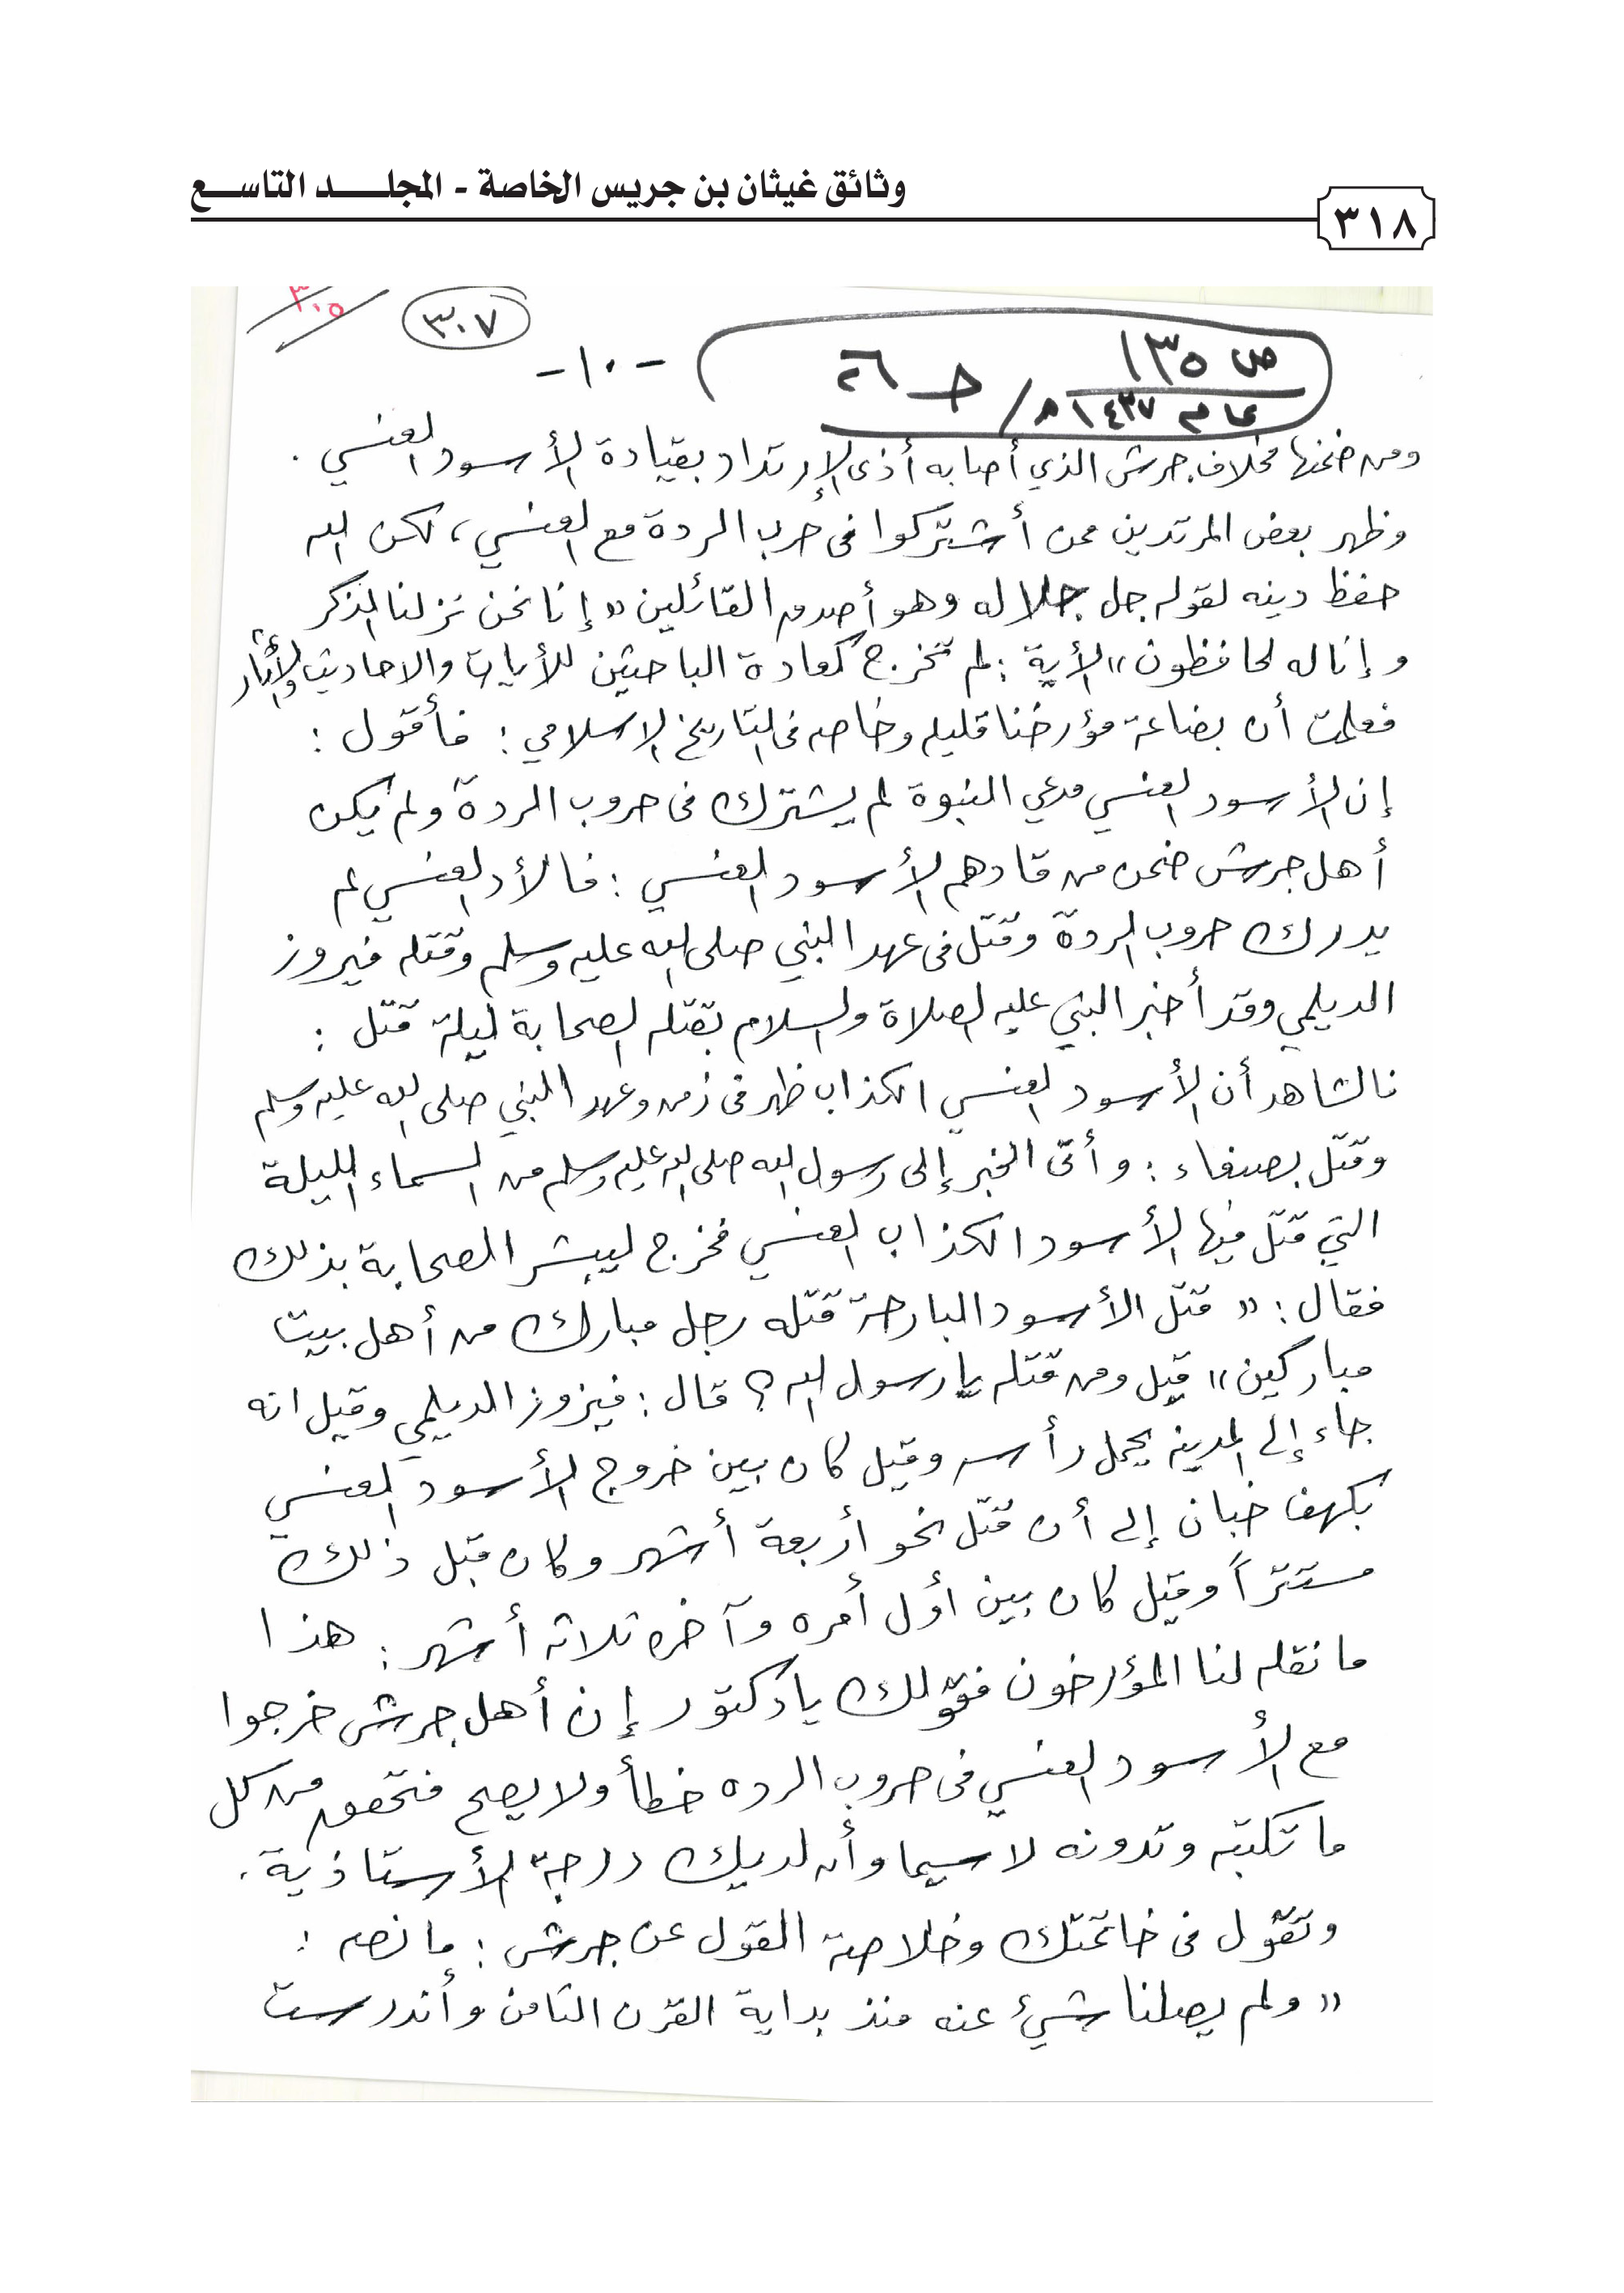 وثائق غيثان بن جريس الخاصة - المجلد التاسع
٣١٨
٣٠٥
٣٠٧
-١٠-
ص ١٣٥
عام ١٤٣٧هـ / حـ ٢٦
ومن ضمنها مخلاف جرش الذي أصابه أذى الإرتداد بقيادة الأسود العنسي .
وظهر بعض المرتدين ممن أشتركوا في حرب الردة مع العنسي ، لكن الله
حفظ دينه لقوله جل جلاله وهو أصدق القائلين « إنا نحن نزلنا الذكر
وإنا له لحافظون » الأية : لم تخرج كعادة الباحثين للأيات والاحاديث والأثار
فعلمت أن بضاعة مؤرخنا قليله وخاصه في التاريخ الاسلامي : فأقول :
إن الأسود العنسي مدعي النبوة لم يشترك في حروب الردة ولم يكن
أهل جرش ضمن من قادهم الأسود العنسي : فالأد العنسي لم
يدرك حروب الردة وقتل في عهد النبي صلى الله عليه وسلم وقتله فيروز
الديلمي وقد أخبر النبي عليه الصلاة والسلام بقتله الصحابة ليلة قتل :
فالشاهد أن الأسود العنسي الكذاب ظهر في زمن وعهد النبي صلى الله عليه وسلم
وقتل بصنعاء : وأتى الخبر إلى رسول الله صلى الله عليه وسلم من السماء الليلة
التي قتل فيها الأسود الكذاب العنسي فخرج ليبشر الصحابة بذلك
فقال : « قتل الأسود البارحة قتله رجل مبارك من أهل بيت
مباركين » قيل ومن قتله يا رسول الله ؟ قال : فيروز الديلمي وقيل انه
جاء إلى المدينه يحمل رأسه وقيل كان بين خروج الأسود العنسي
بكهف خبان إلى أن قتل نحو أربعة أشهر وكان قبل ذلك
مستتراً وقيل كان بين أول أمره وآخره ثلاثه أشهر : هذا
ما نقله لنا المؤرخون فقولك يا دكتور إن أهل جرش خرجوا
مع الأسود العنسي في حروب الرده خطأ ولا يصح فتحقق من كل
ما تكتبه وتدونه لا سيما وأن لديك درجة الأستاذية .
وتقول في خاتمتك وخلاصة القول عن جرش : ما نصه :
« ولم يصلنا شيئ عنه منذ بداية القرن الثامن وأندرست